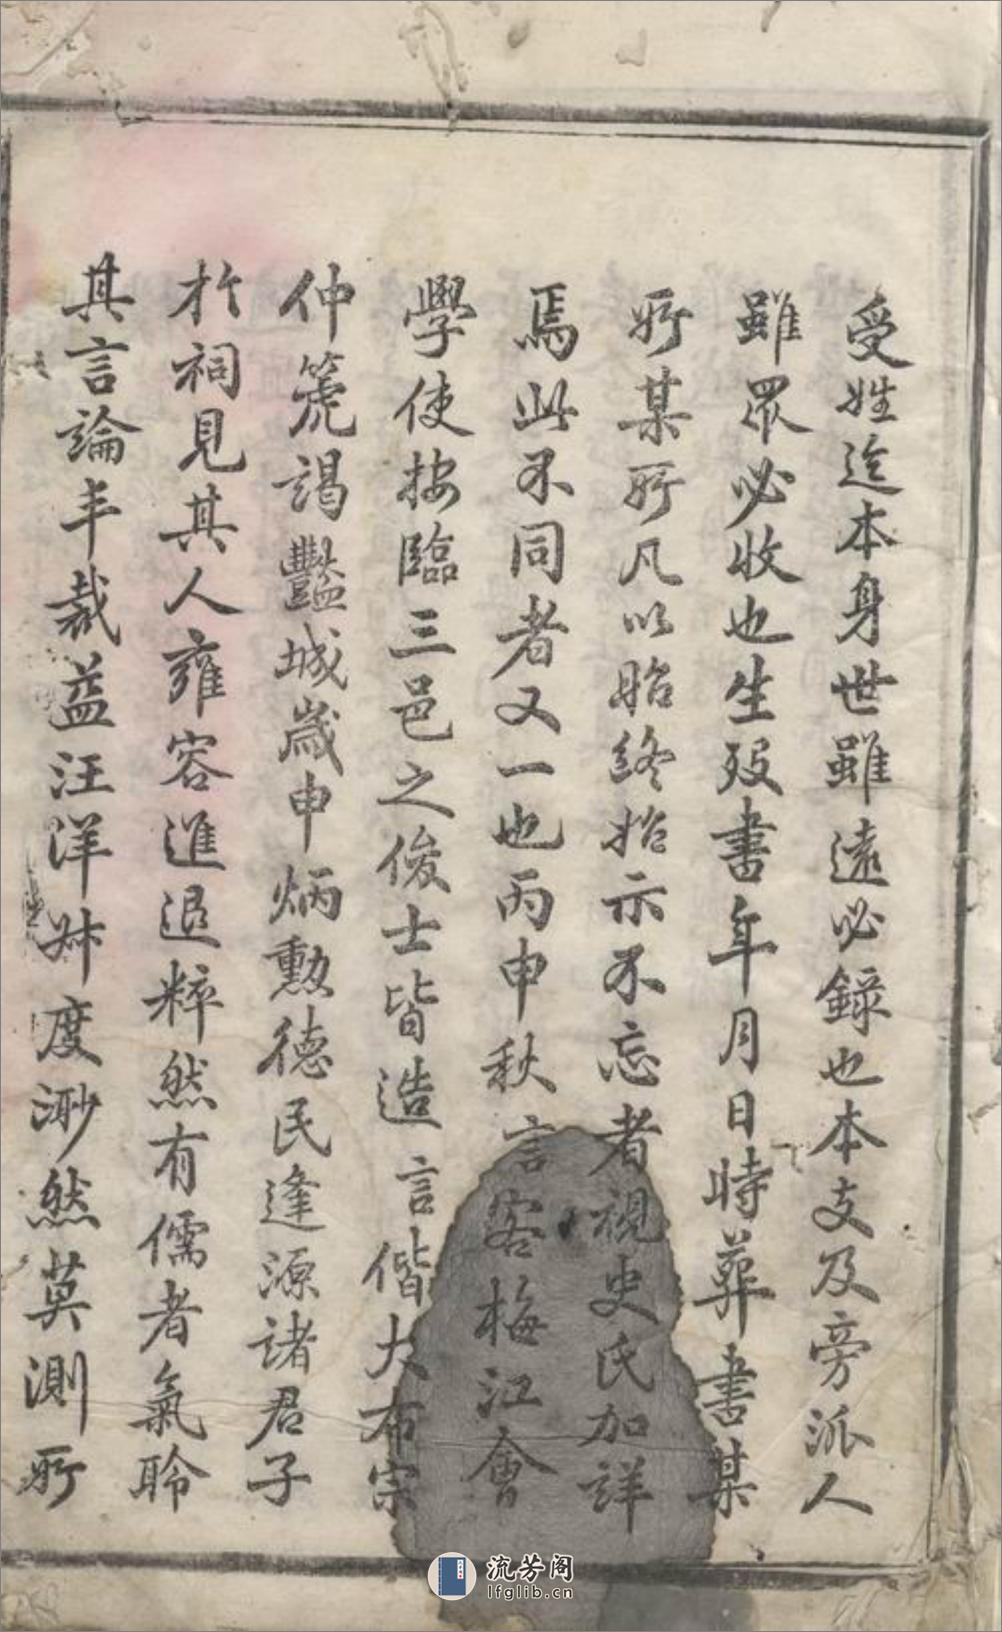 受姓迄本身世雖遠必錄也本支及旁派人
雖眾必收也生歿書年月日時葬書某
所某所凡以貽終始示不忘者視史氏加詳
焉此不同者又一也丙申秋言客梅江會
學使按臨三邑之俊士皆造言偕大布宗
仲箎謁豔城歲申炳勳德民逢源諸君子
於祠見其人雍容進退粹然有儒者氣聆
其言論丰裁益汪洋叔度渺然莫測所
流芳阁
lfglib.cn